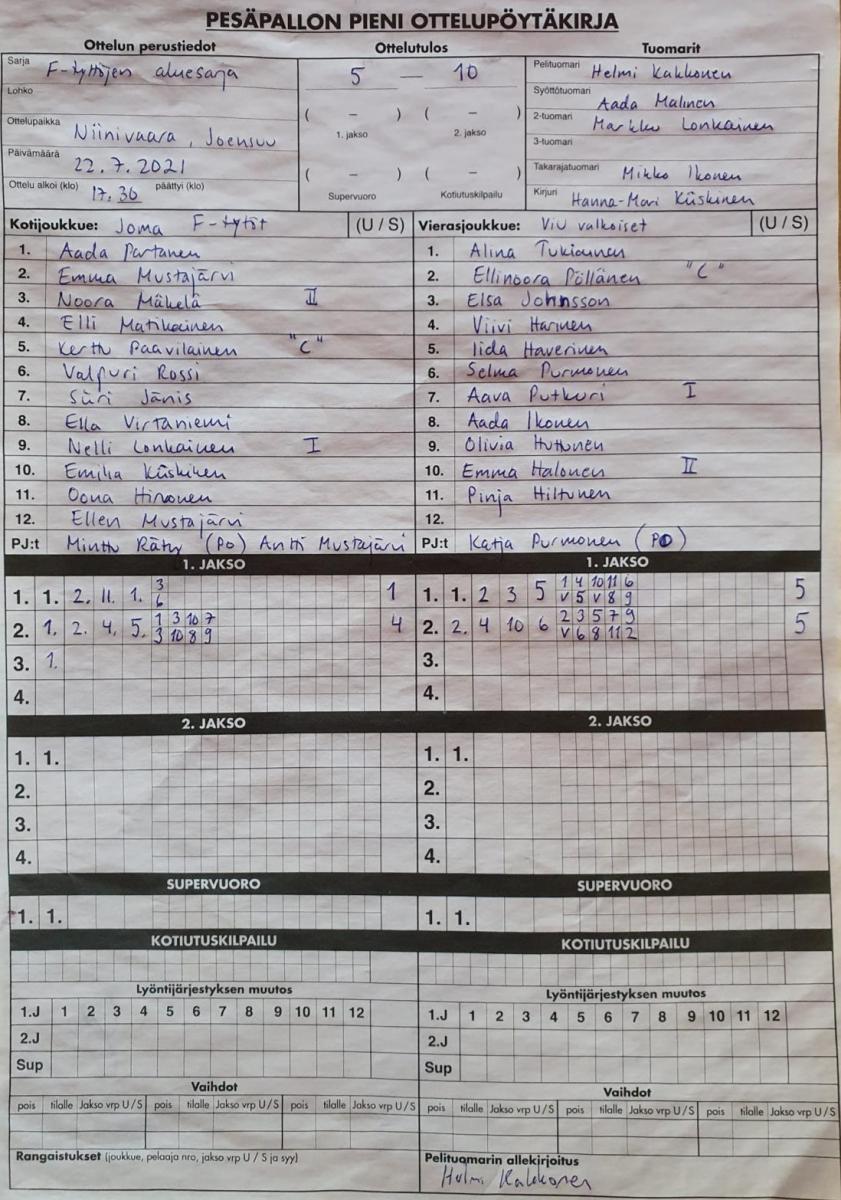 PESÄPALLON PIENI OTTELUPÖYTÄKIRJA
Ottelun perustiedot
Sarja F-tyttöjen aluesarja
Lohko
Ottelupaikka Niinivaara, Joensuu
Päivämäärä 22.7.2021
Ottelu alkoi (klo) 17.30 päättyi (klo)
Ottelutulos
5 — 10
( – ) ( – )
1. jakso 2. jakso
( – ) ( – )
Supervuoro Kotiutuskilpailu
Tuomarit
Pelituomari Helmi Kakkonen
Syöttötuomari Aada Malinen
2-tuomari Markku Lonkainen
3-tuomari
Takarajatuomari Mikko Ikonen
Kirjuri Hanna-Mari Kiiskinen
Kotijoukkue: Joma F-tytöt (U / S)
1. Aada Partanen
2. Emma Mustajärvi
3. Noora Mäkelä II
4. Elli Matikainen
5. Kerttu Paavilainen "C"
6. Valpuri Rossi
7. Siiri Jänis
8. Ella Virtaniemi
9. Nelli Lonkainen I
10. Emilia Kiiskinen
11. Oona Hirvonen
12. Ellen Mustajärvi
PJ:t Minttu Räty (PO) Antti Mustajärvi
Vierasjoukkue: ViU valkoiset (U / S)
1. Alina Tukiainen
2. Ellinoora Pöllänen "C"
3. Elsa Johnsson
4. Viivi Harinen
5. Iida Haverinen
6. Selma Purmonen
7. Aava Putkuri I
8. Aada Ikonen
9. Olivia Huttunen
10. Emma Halonen II
11. Pinja Hiltunen
12.
PJ:t Katja Purmonen (PO)
1. JAKSO
1. 1. 2. 11. 1. 3 1
6
2. 1. 2. 4. 5. 1 3 10 7 4
3 10 8 9
3. 1.
4.
1. JAKSO
1. 1. 2 3 5 1 4 10 11 6 5
V 5 V 8 9
2. 2. 4 10 6 2 3 5 7 9 5
V 6 8 11 2
3.
4.
2. JAKSO
1. 1.
2.
3.
4.
2. JAKSO
1. 1.
2.
3.
4.
SUPERVUORO
1. 1.
SUPERVUORO
1. 1.
KOTIUTUSKILPAILU
KOTIUTUSKILPAILU
Lyöntijärjestyksen muutos
1.J 1 2 3 4 5 6 7 8 9 10 11 12
2.J
Sup
Lyöntijärjestyksen muutos
1.J 1 2 3 4 5 6 7 8 9 10 11 12
2.J
Sup
Vaihdot
pois tilalle Jakso vrp U / S pois tilalle Jakso vrp U / S pois tilalle Jakso vrp U / S
Vaihdot
pois tilalle Jakso vrp U / S pois tilalle Jakso vrp U / S pois tilalle Jakso vrp U / S
Rangaistukset (joukkue, pelaaja nro, jakso vrp U / S ja syy)
Pelituomarin allekirjoitus
Helmi Kakkonen